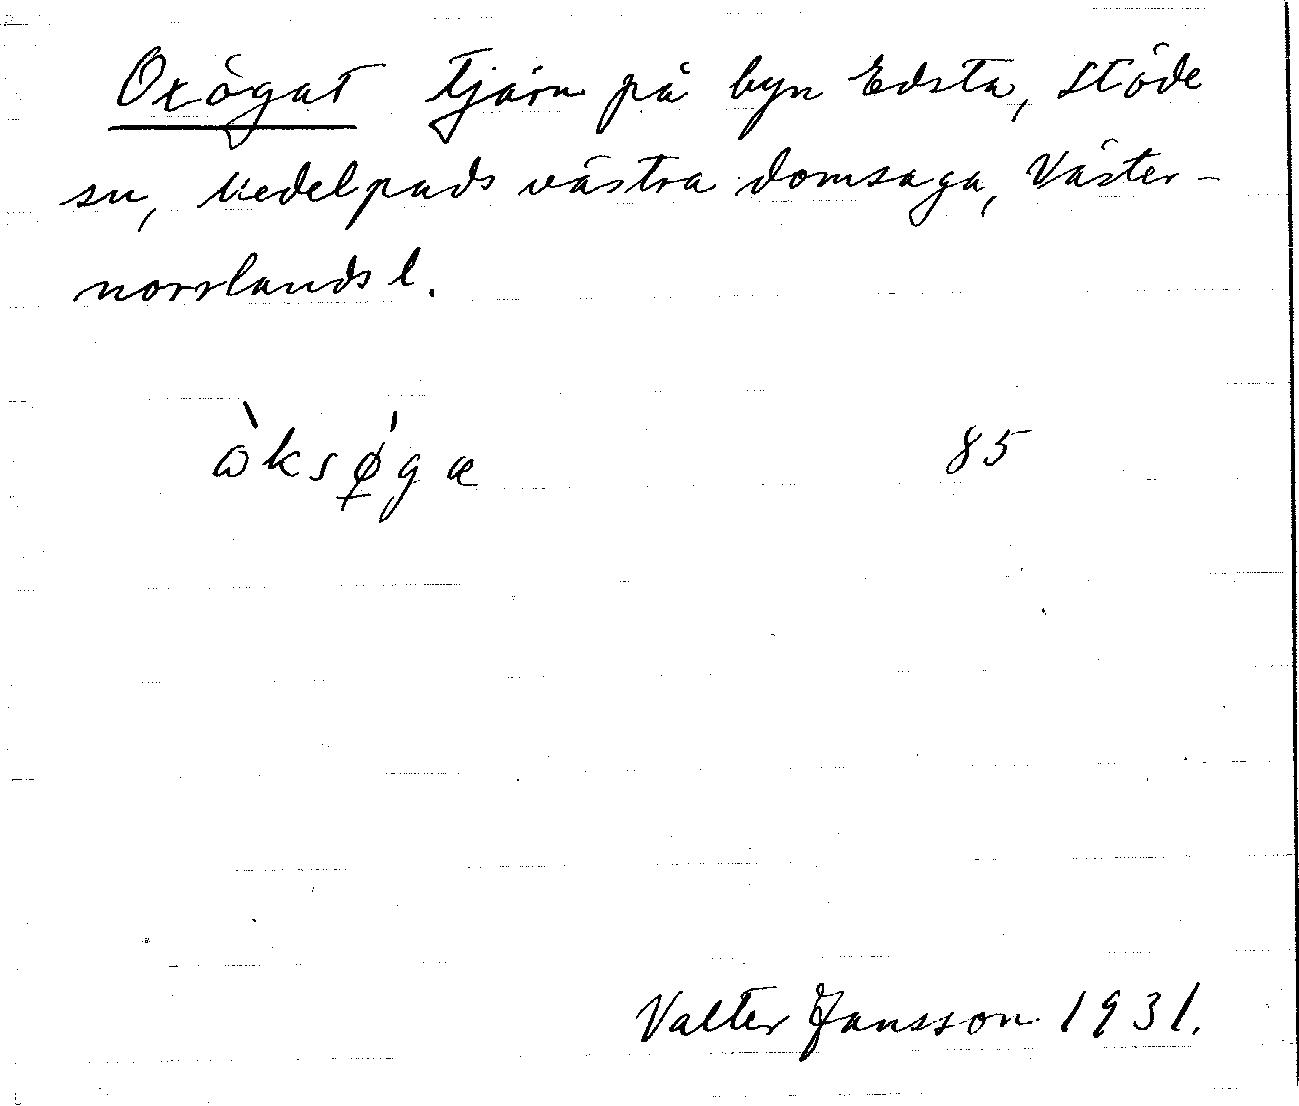 Oxögat tjärn på byn Edsta, Stöde
sn, Medelpads västra domsaga, Väster-
norrlands l.
òksø̀gæ 85
Valter Jansson 1931.